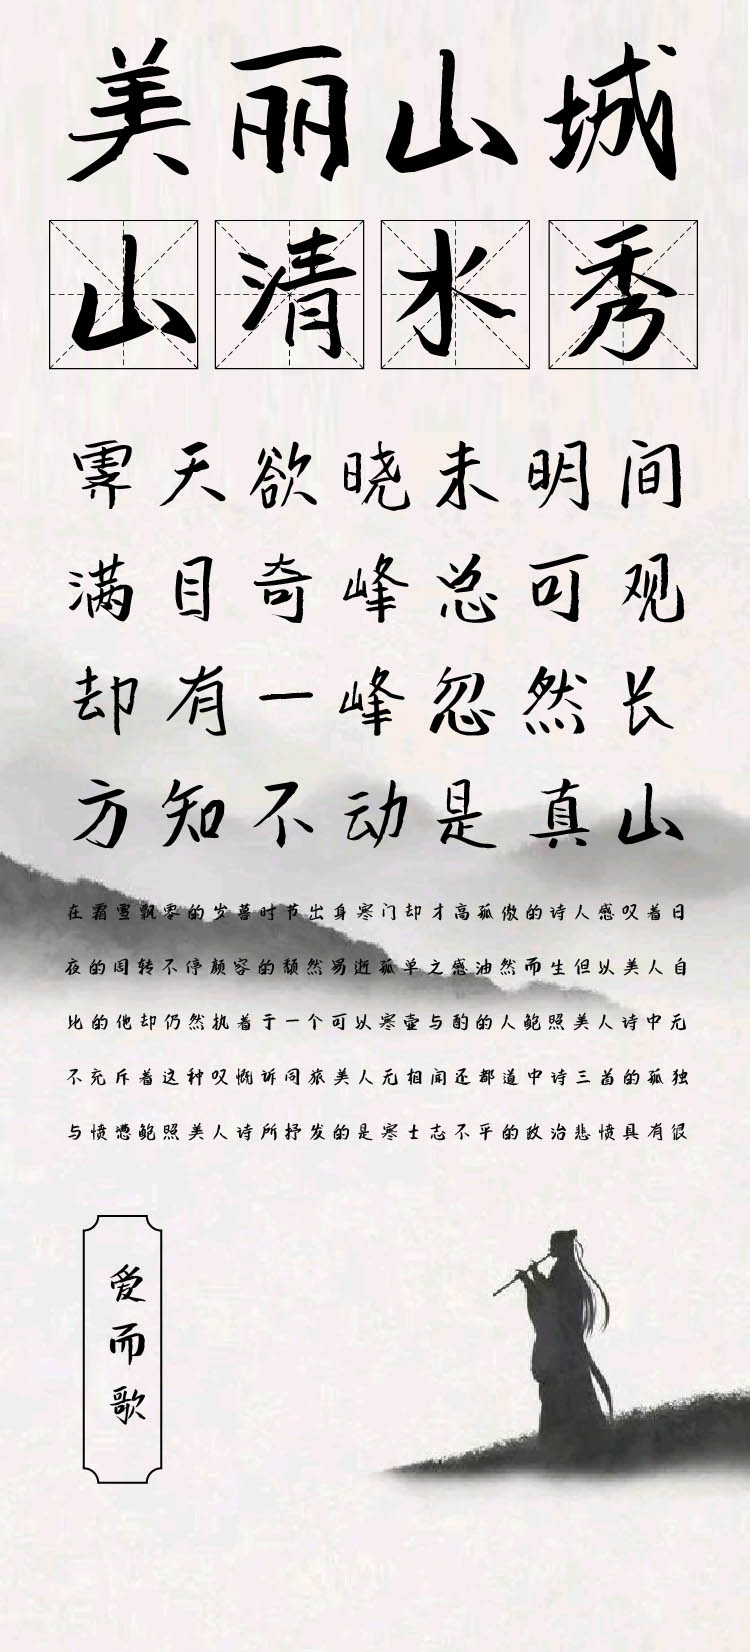 美丽山城
山清水秀
霁天欲晓未明间
满目奇峰总可观
却有一峰忽然长
方知不动是真山
在霜雪飘零的岁暮时节出身寒门却才高孤傲的诗人感叹着日
夜的周转不停颜容的颓然易逝孤单之感油然而生但以美人自
比的他却仍然执着于一个可以寒壶与酌的人鲍照美人诗中无
不充斥着这种叹慨诉同旅美人无相闻还都道中诗三首的孤独
与愤懑鲍照美人诗所抒发的是寒士志不平的政治悲愤具有很
爱而歌